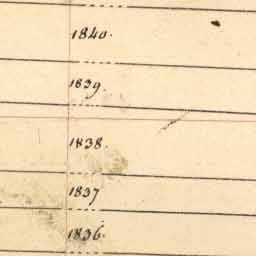 1840.
1839.
1838.
1837
1836.